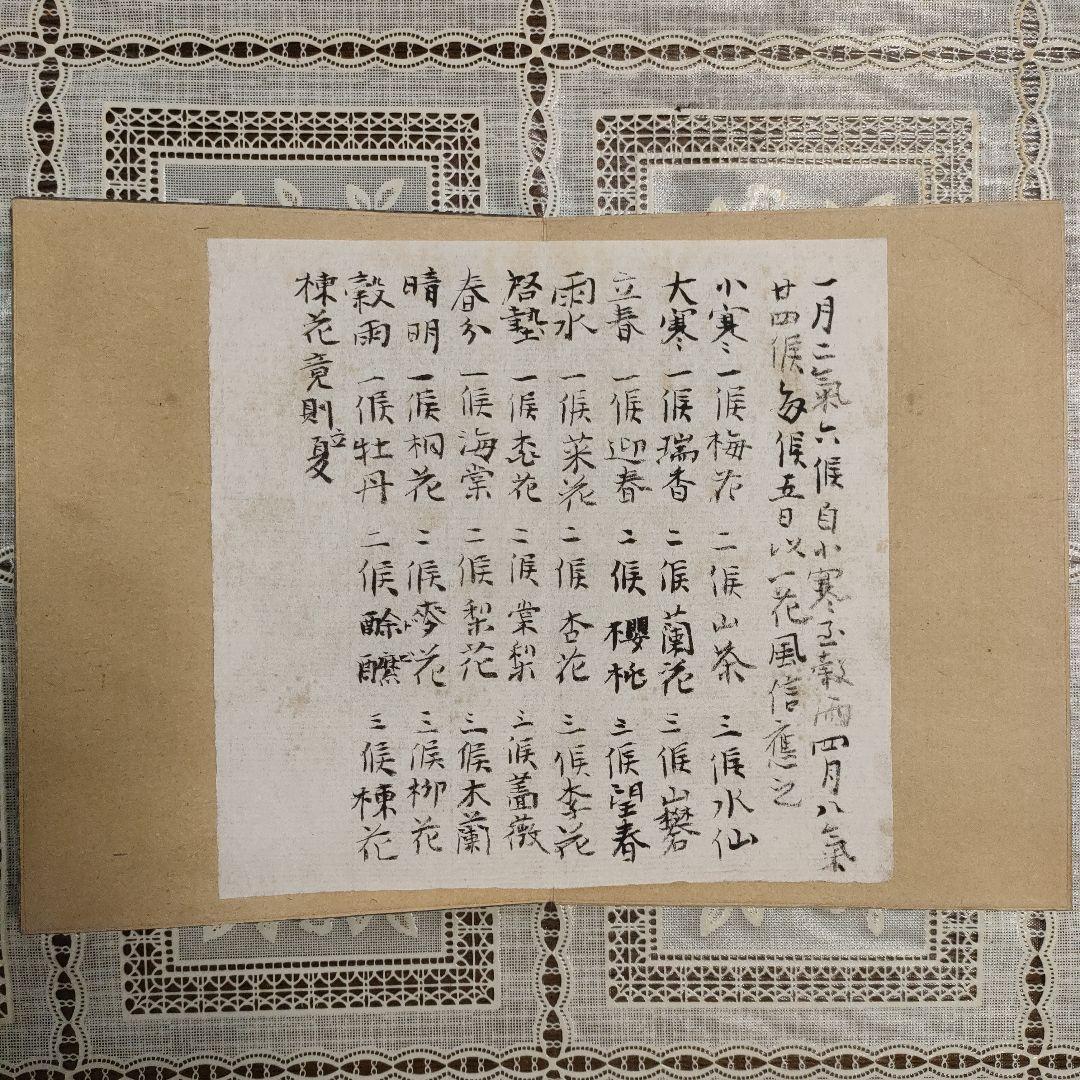 一月二氣六候自小寒至穀雨四月八氣
廿四候每候五日以一花風信應之
小寒 一候梅花 二候山茶 三候水仙
大寒 一候瑞香 二候蘭花 三候山礬
立春 一候迎春 二候櫻桃 三候望春
雨水 一候菜花 二候杏花 三候李花
啓蟄 一候桃花 二候棠梨 三候薔薇
春分 一候海棠 二候梨花 三候木蘭
晴明 一候桐花 二候麥花 三候柳花
穀雨 一候牡丹 二候酴醾 三候楝花
楝花竟則立夏